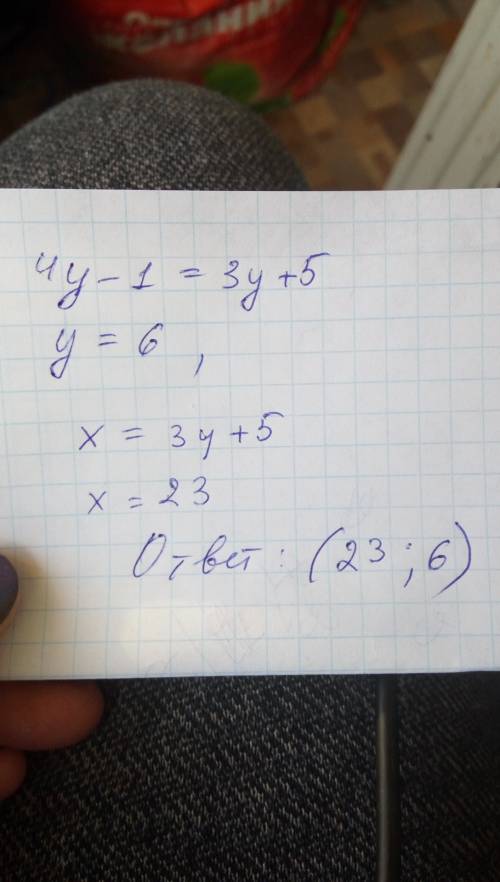 4y - 1 = 3y + 5
y = 6 ,
x = 3y + 5
x = 23
Ответ: (23; 6)